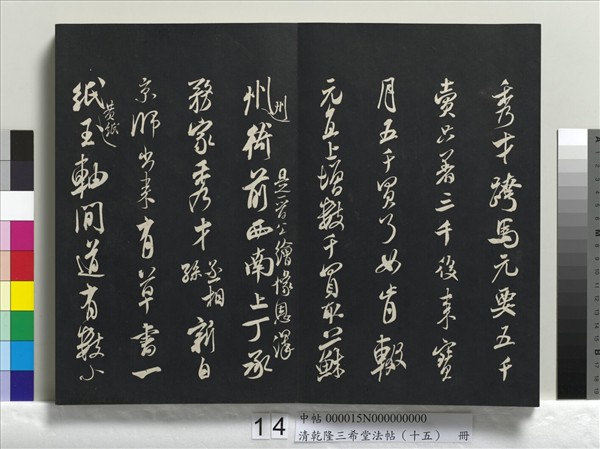 秀才跨馬元要五千
賣只著三千後來寶
月五千買了如肯輟
元直上增數千買取蘇
州州衙前西南上丁承
是晉公繪像恩澤
務家秀才丞相孫新自
京師出來有草書一
紙黃紙玉軸間道有數小
14
中帖 000015N000000000
清乾隆三希堂法帖（十五） 冊